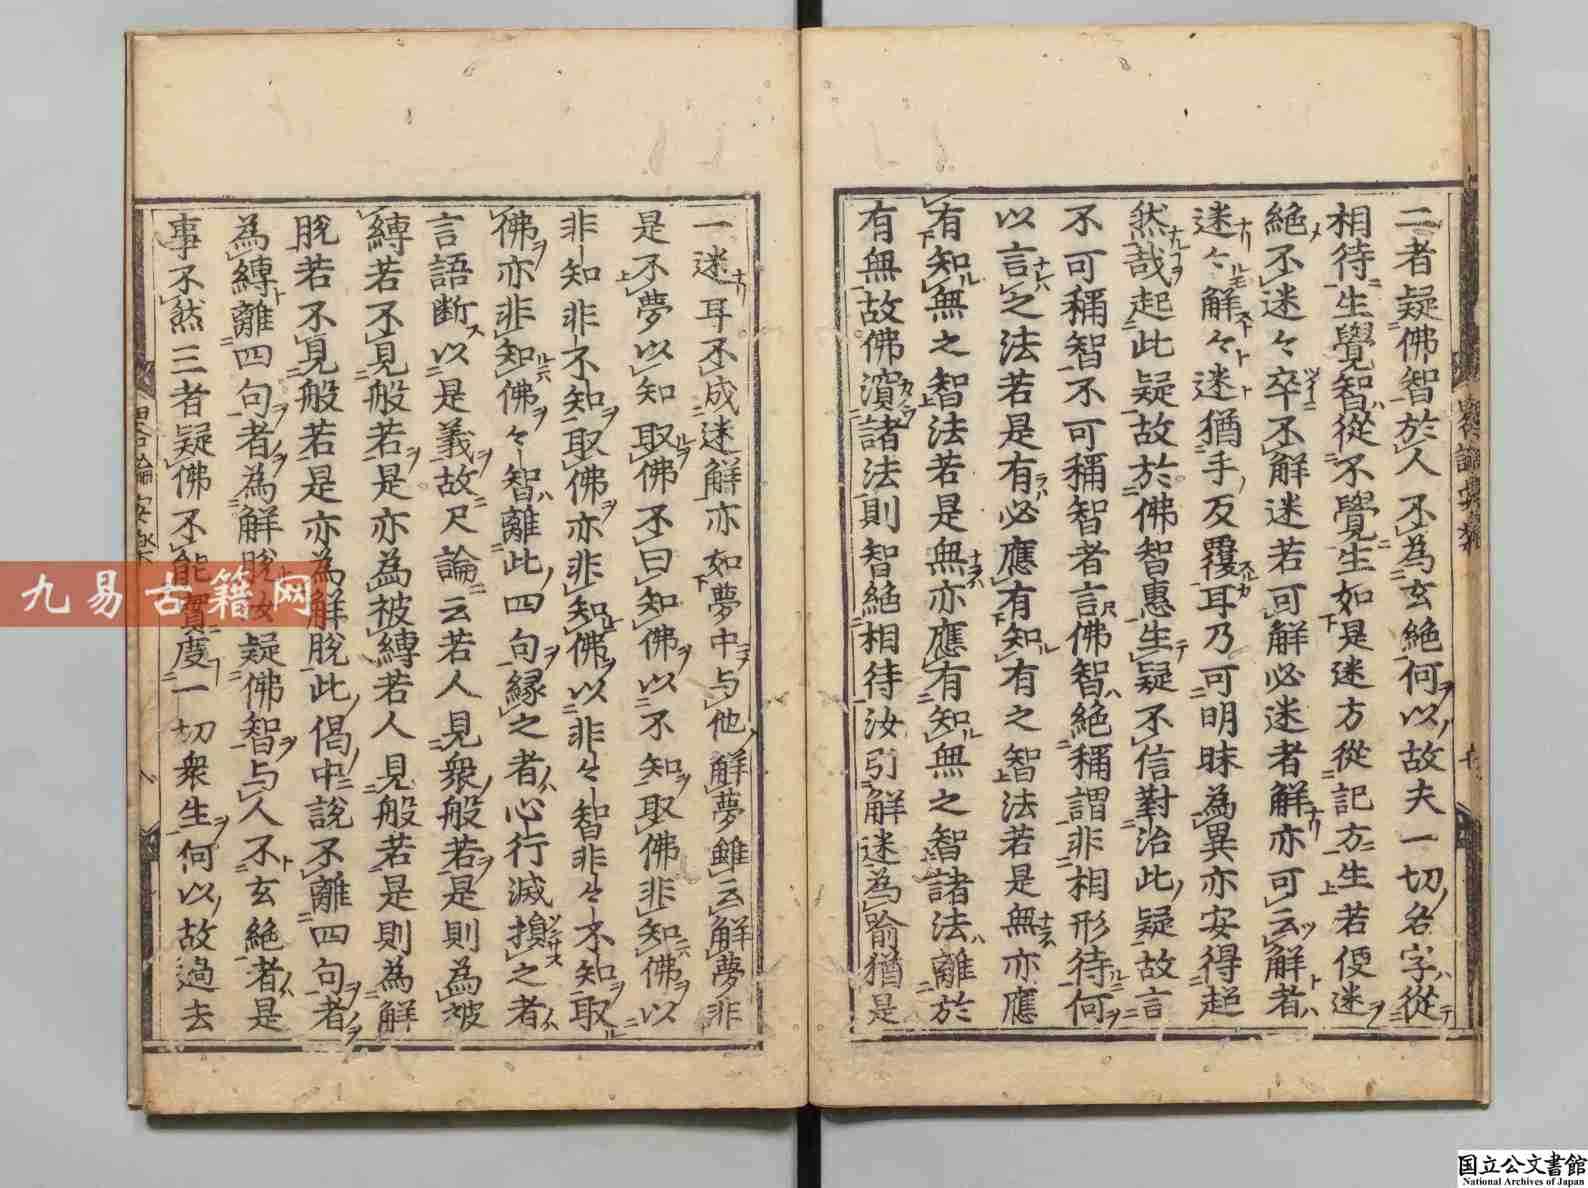 二者疑佛智於人不為玄絶何以故夫一切名字從
相待生覺智從不覺生如是迷方從記方生若便迷
絶不迷々卒不解迷若可解必迷者解亦可云解者
迷々解々迷猶手反覆耳乃可明昧為異亦安得起
然哉起此疑故於佛智惠生疑不信對治此疑故言
不可稱智不可稱智者言佛智絶稱謂非相形待何
以言之法若是有必應有知有之智法若是無亦應
有知無之智法若是無亦應有知無之智諸法離於
有無故佛𡨋諸法則智絶相待汝引解迷為喻猶是
一迷耳不成迷解亦如夢中与他解夢雖云解夢非
是不夢以知取佛不曰知佛以不知取佛非知佛以
非知非不知取佛亦非知佛以非々智非々不知取
佛亦非知佛々智離此四句縁之者心行滅揔之者
言語断以是義故尺論云若人見衆般若是則為被
縛若不見般若是亦為被縛若人見般若是則為解
脱若不見般若是亦為解脱此偈中説不離四句者
為縛離四句者為解脱汝疑佛智与人不玄絶者是
事不然三者疑佛不能實度一切衆生何以故過去
九易古籍网
国立公文書館
National Archives of Japan